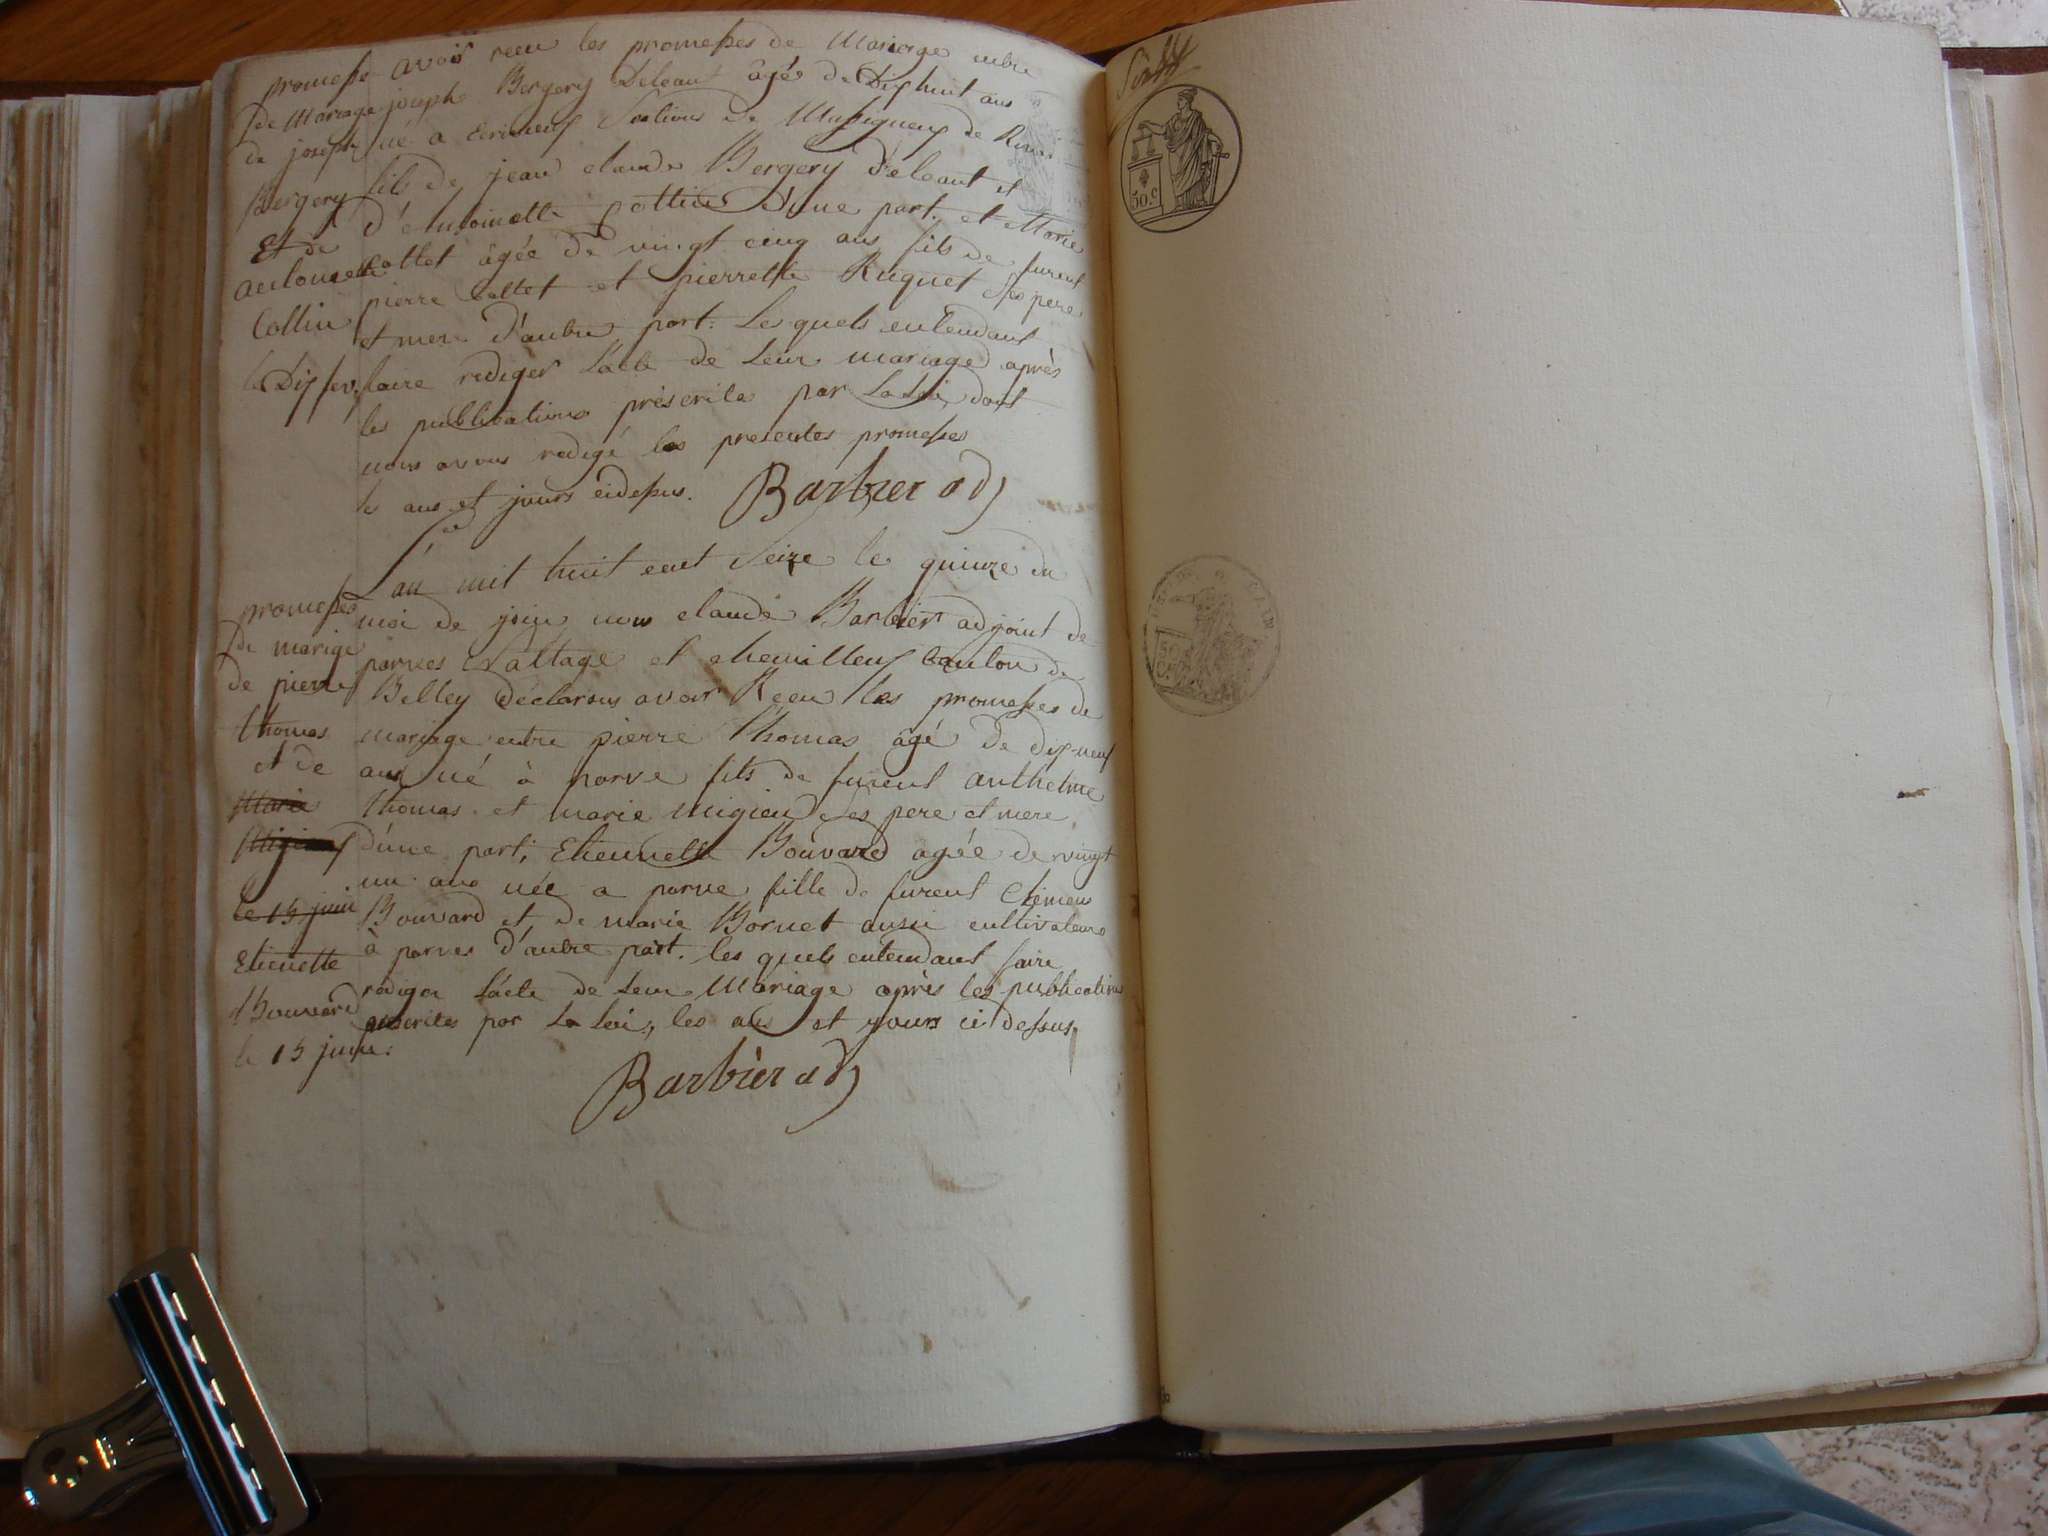 avoir reçu les promesses de Mariage entre
joseph Bergery âgée de Dix huit ans
né a de
fils de jean claude Bergery et
d'Antoinette Collin d'une part. et Marie
Collet âgée de vingt cinq ans fils de furent
pierre Collet et pierrette Ruquet ses pere
et mere d'autre part. Les quels entendant
faire rediger l'acte de Leur mariage après
les publications préscrites par La Loi, dont
nous avons redigé les presentes promesses
le ans et jours cidessus. Barbier adj
promesse
de Mariage
de joseph
Bergery
Et de
antoinette
Collin
L'an mil huit cent Seize le quinze du
moi de juin nous claude Barbier adjoint de
parves nattage et chemilleux canton de
Belley déclarons avoir Reçu les promesses de
mariage entre pierre Thomas âgé de dix-neuf
ans né à parve fils de furent anthelme
thomas et marie Migieu ses pere et mere
d'une part; Etiennette Bouvard agée de vingt
un ans née a parve fille de furent Clémens
Bouvard et de marie Bornet aussi cultivateurs
à parves d'autre part. les quels entendant faire
rédiger l'acte de Leur Mariage après les publications
prescrites par La Loi, les ans et jours ci dessus
Barbier adj
promesses
de marige
de pierre
thomas
et de
Maria
Migieux
le 15 juin
Etienette
Bouvard
le 15 juin.
50.c